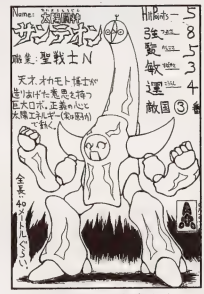 Name:
太陽闘神
サンデオン
職業:聖戦士N
天才、オカモト博士が
造りあげた意思を持つ
巨大ロボ。正義の心と
太陽エネルギー(実は原子力)
で動く。
全長:40メートルぐらい。
Hit Points— 5
強 8
賢 5
敏 3
運 4
敵国 ③ 番